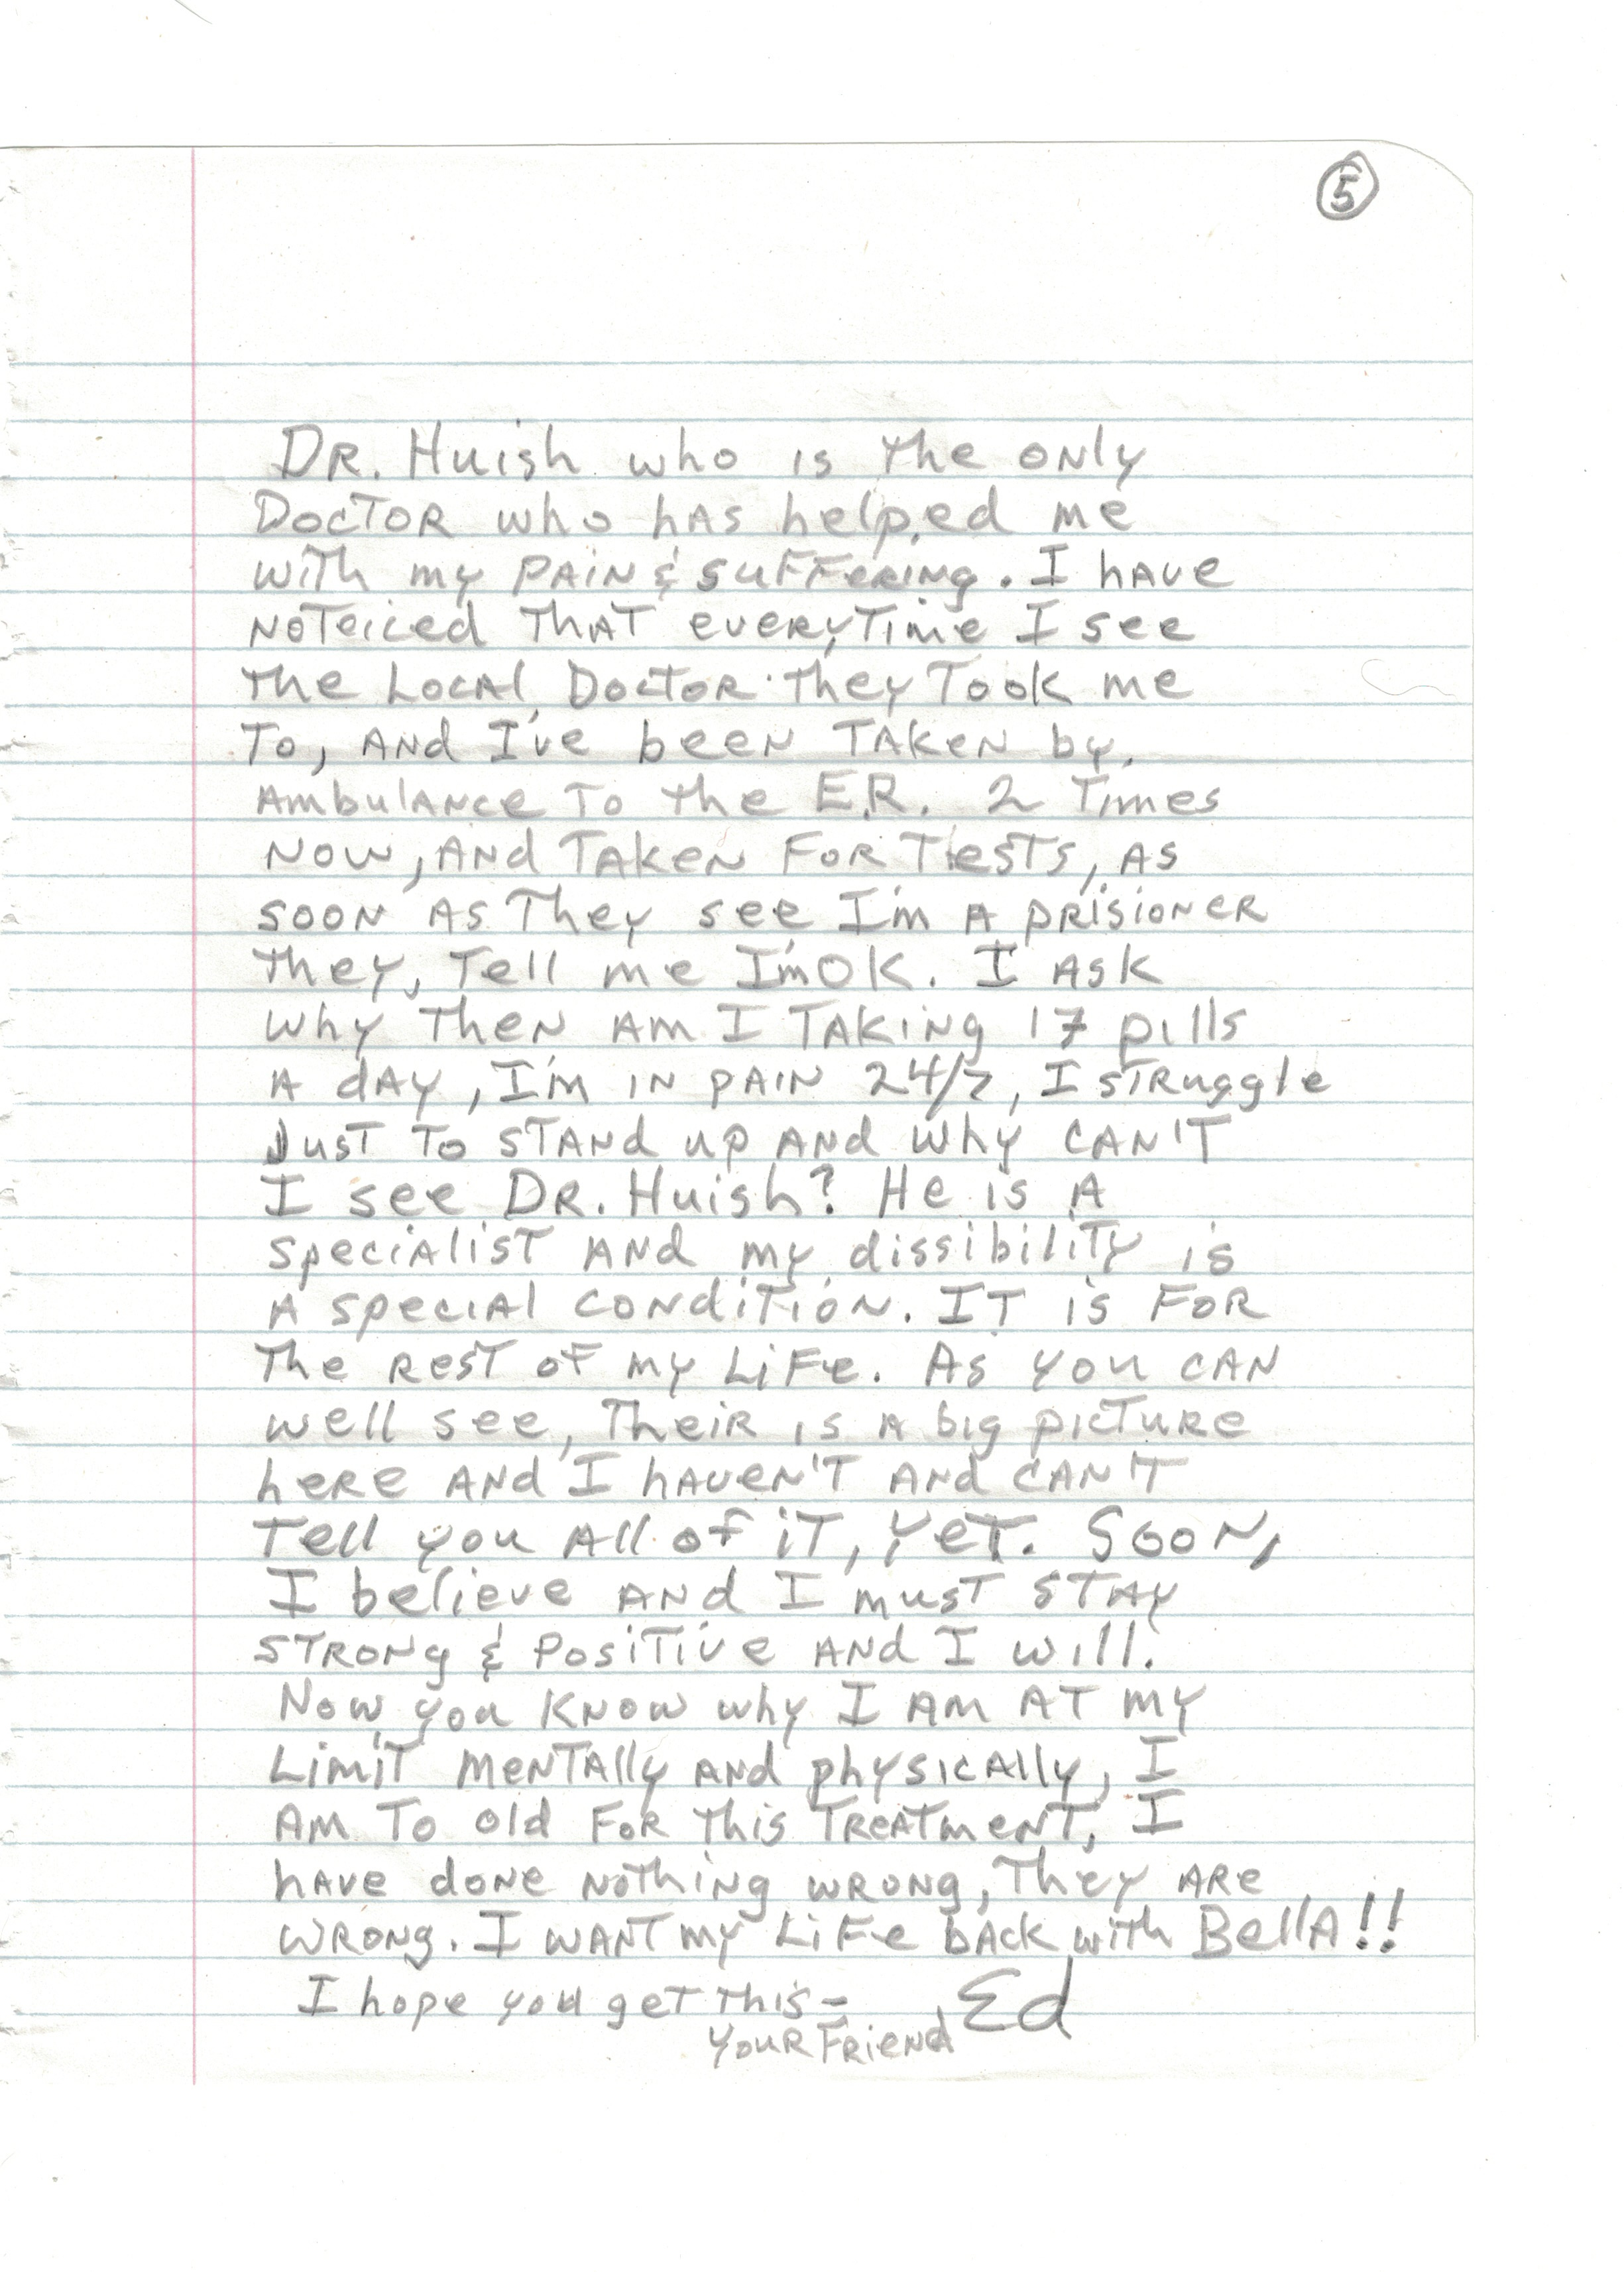 5
DR. Huish who is the only
Doctor who has helped me
with my pain & suffering. I have
noteiced that everytime I see
the Local Doctor they Took me
To, and I've been Taken by
Ambulance To the E.R. 2 Times
Now, and Taken For Tests, as
soon as They see I'm a prisioner
they, Tell me I'm OK. I ask
why Then am I Taking 17 pills
a day, I'm in pain 24/7, I struggle
Just To stand up and why can't
I see DR. Huish? He is a
specialist and my dissibility is
a special condition. IT is For
The rest of my Life. As you can
well see, Their is a big picture
here and I haven't and can't
Tell you all of iT, yet. Soon,
I believe and I must stay
strong & Positive and I will.
Now you know why I am at my
Limit mentally and physically, I
am To old For this Treatment, I
have done nothing wrong, They are
wrong. I want my Life back with Bella!!
I hope you get this -
Your Friend, Ed